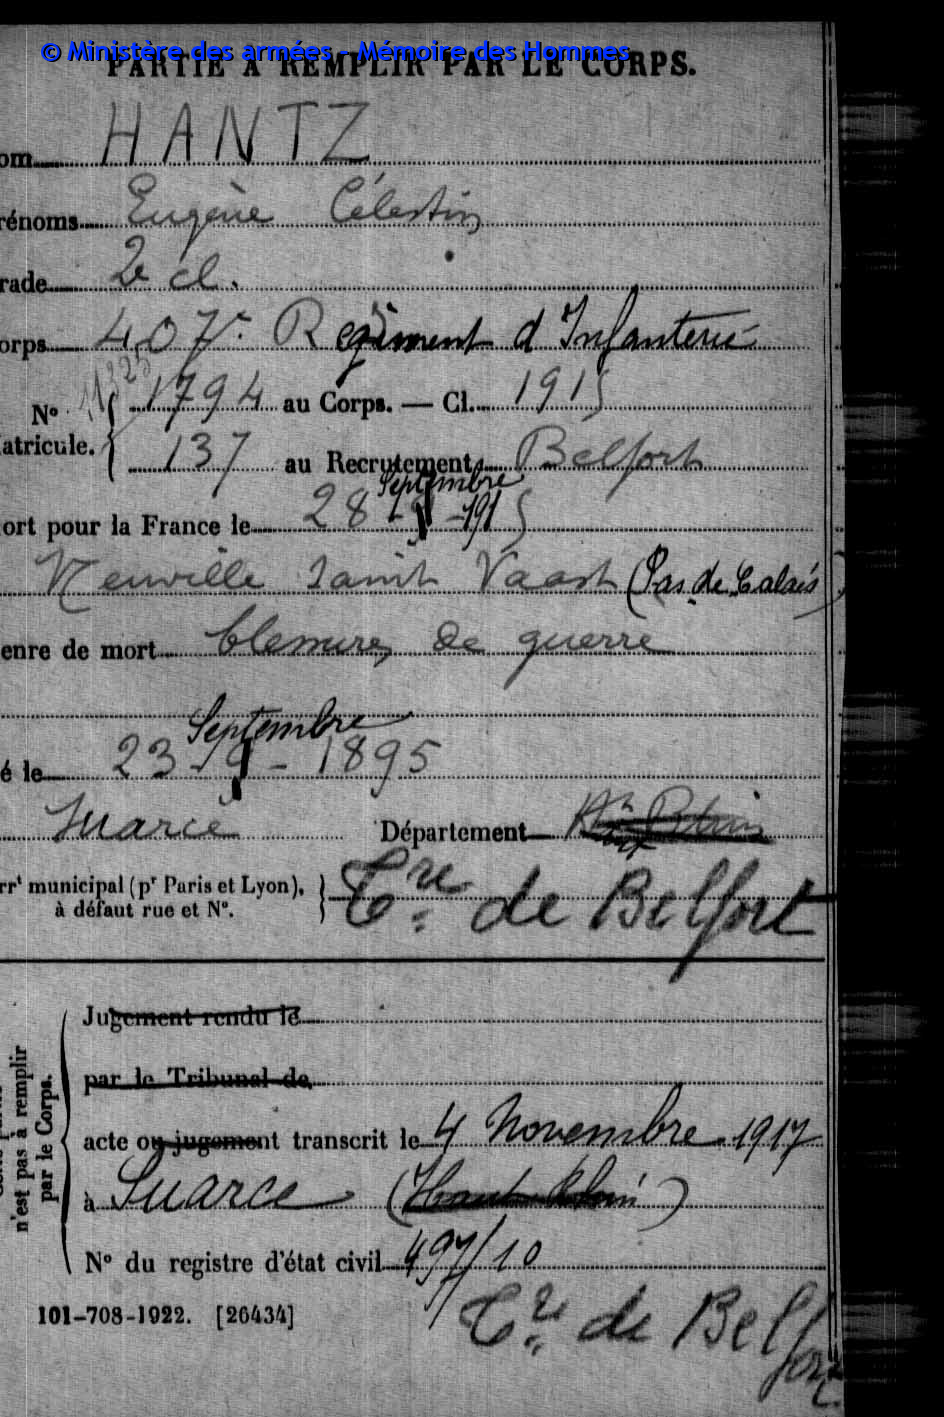 © Ministère des armées - Mémoire des Hommes
PARTIE À REMPLIR PAR LE CORPS.
om HANTZ
rénoms Eugène Célestin
rade 2e cl.
orps 407e Régiment d'Infanterie
11325
N° 1794 au Corps. — Cl. 1915
atricule. 137 au Recrutement Belfort
Septembre
ort pour la France le 28-9-1915
Neuville Saint Vaast (Pas de Calais)
enre de mort blessures de guerre
Septembre
é le 23-9-1895
Suarce Département Ht Rhin
rrt municipal (pr Paris et Lyon), à défaut rue et N°. Tre de Belfort
n'est pas à remplir
par le Corps.
Jugement rendu le
par le Tribunal de
acte ou jugement transcrit le 4 Novembre 1917
à Suarce (Haut Rhin)
N° du registre d'état civil 497/10
101-708-1922. [26434]
Tre de Belfort